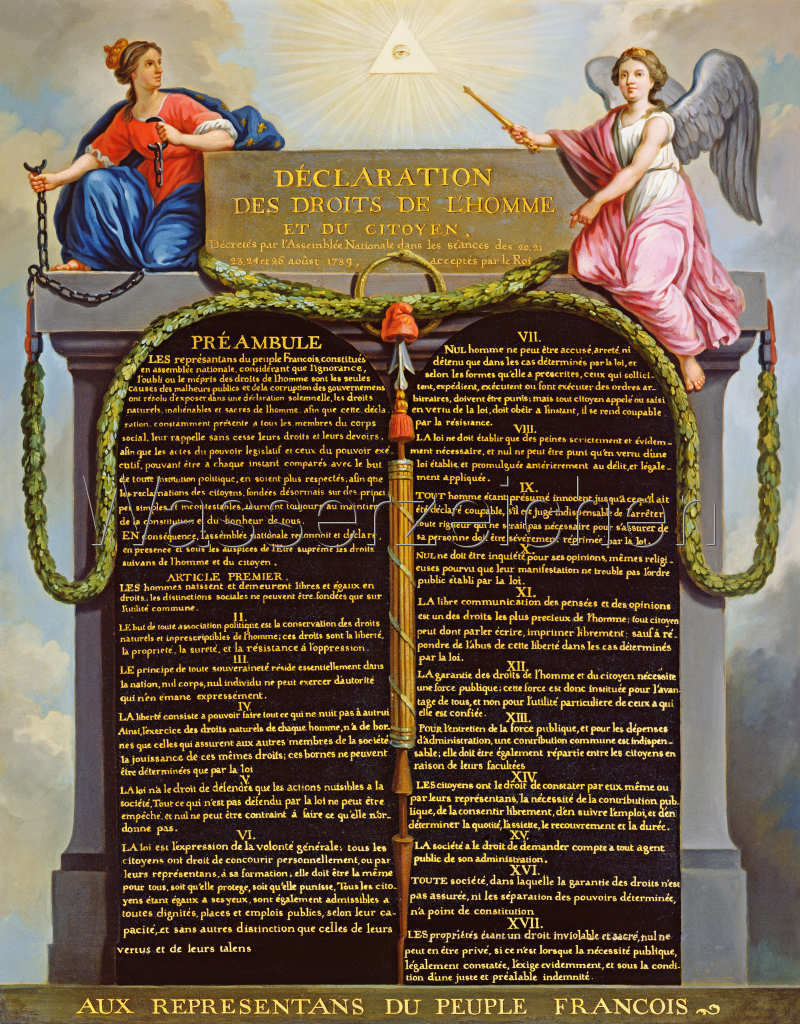 DÉCLARATION
DES DROITS DE L'HOMME
ET DU CITOYEN,
Décretés par l'Assemblée Nationale dans les séances des 20, 21
23, 24 et 26 août 1789, acceptés par le Roi
PRÉAMBULE
LES représantans du peuple Francois, constitués
en assemblée nationale, considérant que l'ignorance,
l'oubli ou le mépris des droits de l'homme sont les seules
causes des malheurs publics et de la corruption des gouvernemens
ont résolu d'exposer dans une déclaration solemnelle, les droits
naturels, inaliénables et sacrés de l'homme, afin que cette décla
ration, constamment présente a tous les membres du corps
social, leur rappelle sans cesse leurs droits et leurs devoirs,
afin que les actes du pouvoir legislatif et ceux du pouvoir exé
cutif, pouvant être a chaque instant comparés avec le but
de toute institution politique, en soient plus respectés; afin que
les reclamations des citoyens, fondées désormais sur des princi
pes simples et incontestables, tournent toujours au maintien
de la constitution et du bonheur de tous.
EN conséquence, l'assemblée nationale reconnoit et declare
en presence et sous les auspices de l'Etre suprême les droits
suivans de l'homme et du citoyen.
ARTICLE PREMIER.
LES hommes naissent et demeurent libres et égaux en
droits, les distinctions sociales ne peuvent être fondées que sur
l'utilité commune.
II.
LE but de toute association politique est la conservation des droits
naturels et inprescriptibles de l'homme; ces droits sont la liberté,
la propriété, la sureté, et la résistance à l'oppression.
III.
LE principe de toute souveraineté réside essentiellement dans
la nation, nul corps, nul individu ne peut exercer d'autorité
qui n'en émane expressément.
IV.
LA liberté consiste a pouvoir faire tout ce qui ne nuit pas à autrui
Ainsi, l'exercice des droits naturels de chaque homme, n'a de bor-
nes que celles qui assurent aux autres membres de la société
la jouissance de ces mêmes droits; ces bornes ne peuvent
être déterminées que par la loi
V.
LA loi n'a le droit de défendre que les actions nuisibles a la
société, Tout ce qui n'est pas défendu par la loi ne peut être
empêché, et nul ne peut être contraint à faire ce qu'elle n'or-
donne pas.
VI.
LA loi est l'expression de la volonté générale; tous les
citoyens ont droit de concourir personnellement, ou par
leurs représentans, à sa formation; elle doit être la même
pour tous, soit qu'elle protege, soit qu'elle punisse, Tous les cito-
yens étant égaux a ses yeux, sont également admissibles a
toutes dignités, places et emplois publics, selon leur ca-
pacité, et sans autres distinction que celles de leurs
vertus et de leurs talens
VII.
NUL homme ne peut être accusé, arreté, ni
détenu que dans les cas déterminés par la loi, et
selon les formes qu'elle a prescrites, ceux qui sollici-
tent, expédient, exécutent ou font exécuter des ordres ar-
bitraires, doivent être punis; mais tout citoyen appelé ou saisi
en vertu de la loi, doit obéir a l'instant, il se rend coupable
par la résistance.
VIII.
LA loi ne doit établir que des peines strictement et évidem-
ment nécessaire, et nul ne peut être puni qu'en vertu d'une
loi établie et promulguée antérierement au délit, et légale-
ment appliquée.
IX.
TOUT homme étant présumé innocent jusqu'a ce qu'il ait
été déclaré coupable, s'il est jugé indispensable de l'arrêter,
toute rigueur qui ne serait pas nécessaire pour s'assurer de
sa personne doit être sévèrement réprimée par la loi.
X.
NUL ne doit être inquiété pour ses opinions, mêmes religi-
euses pourvu que leur manifestation ne trouble pas l'ordre
public établi par la loi.
XI.
LA libre communication des pensées et des opinions
est un des droits les plus precieux de l'homme; tout citoyen
peut dont parler écrire, imprimer librement; sauf à ré-
pondre de l'abus de cette liberté dans les cas déterminés
par la loi.
XII.
LA garantie des droits de l'homme et du citoyen nécessite
une force publique; cette force est donc instituée pour l'avan-
tage de tous, et non pour l'utilité particuliere de ceux a qui
elle est confiée.
XIII.
POUR l'entretien de la force publique, et pour les dépenses
d'administration, une contribution commune est indispen-
sable; elle doit être également répartie entre les citoyens en
raison de leurs facultées
XIV.
LES citoyens ont le droit de constater par eux même ou
par leurs représentans, la nécessité de la contribution pub-
lique, de la consentir librement, d'en suivre l'emploi, et d'en
déterminer la quotité, l'assiette, le recouvrement et la durée.
XV.
LA société a le droit de demander compte a tout agent
public de son administration.
XVI.
TOUTE société, dans laquelle la garantie des droits n'est
pas assurée, ni les séparation des pouvoirs déterminée,
n'a point de constitution
XVII.
LES propriétés étant un droit inviolable et sacré, nul ne
peut en être privé, si ce n'est lorsque la nécessité publique,
légalement constatée, l'exige evidemment, et sous la condi-
tion d'une juste et préalable indemnité.
AUX REPRESENTANS DU PEUPLE FRANCOIS
Wasserzeichen